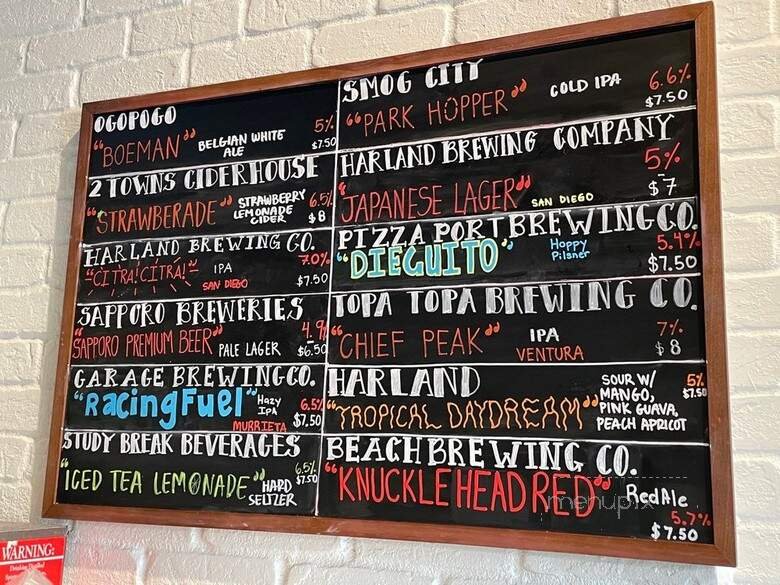 OGOPOGO
"BOEMAN" BELGIAN WHITE ALE 5% $7.50
2 TOWNS CIDERHOUSE
"STRAWBERADE" STRAWBERRY LEMONADE CIDER 6.5% $8
HARLAND BREWING CO.
"CITRA! CITRA!" IPA SAN DIEGO 7.0% $7.50
SAPPORO BREWERIES
"SAPPORO PREMIUM BEER" PALE LAGER 4.9% $6.50
GARAGE BREWING CO.
"Racing Fuel" Hazy IPA MURRIETA 6.5% $7.50
STUDY BREAK BEVERAGES
"ICED TEA LEMONADE" HARD SELTZER 6.5% $7.50
SMOG CITY
"PARK HOPPER" COLD IPA 6.6% $7.50
HARLAND BREWING COMPANY
"JAPANESE LAGER" SAN DIEGO 5% $7
PIZZA PORT BREWING CO.
"DIEGUITO" Hoppy Pilsner 5.4% $7.50
TOPA TOPA BREWING CO.
"CHIEF PEAK" IPA VENTURA 7% $8
HARLAND
"TROPICAL DAYDREAM" SOUR W/ MANGO, PINK GUAVA, PEACH APRICOT 5% $7.50
BEACH BREWING CO.
"KNUCKLE HEAD RED" Red Ale 5.7% $7.50
menupix
WARNING: